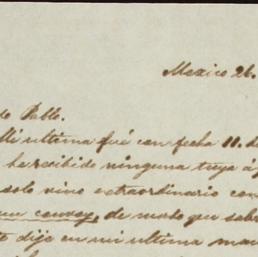 Mexico 26.
do Pablo.
Mi ultima fué con fecha 11. d
he recibido ninguna tuya á
solo vino extraordinario con
un convoy, de modo que sab
te dije en mi ultima